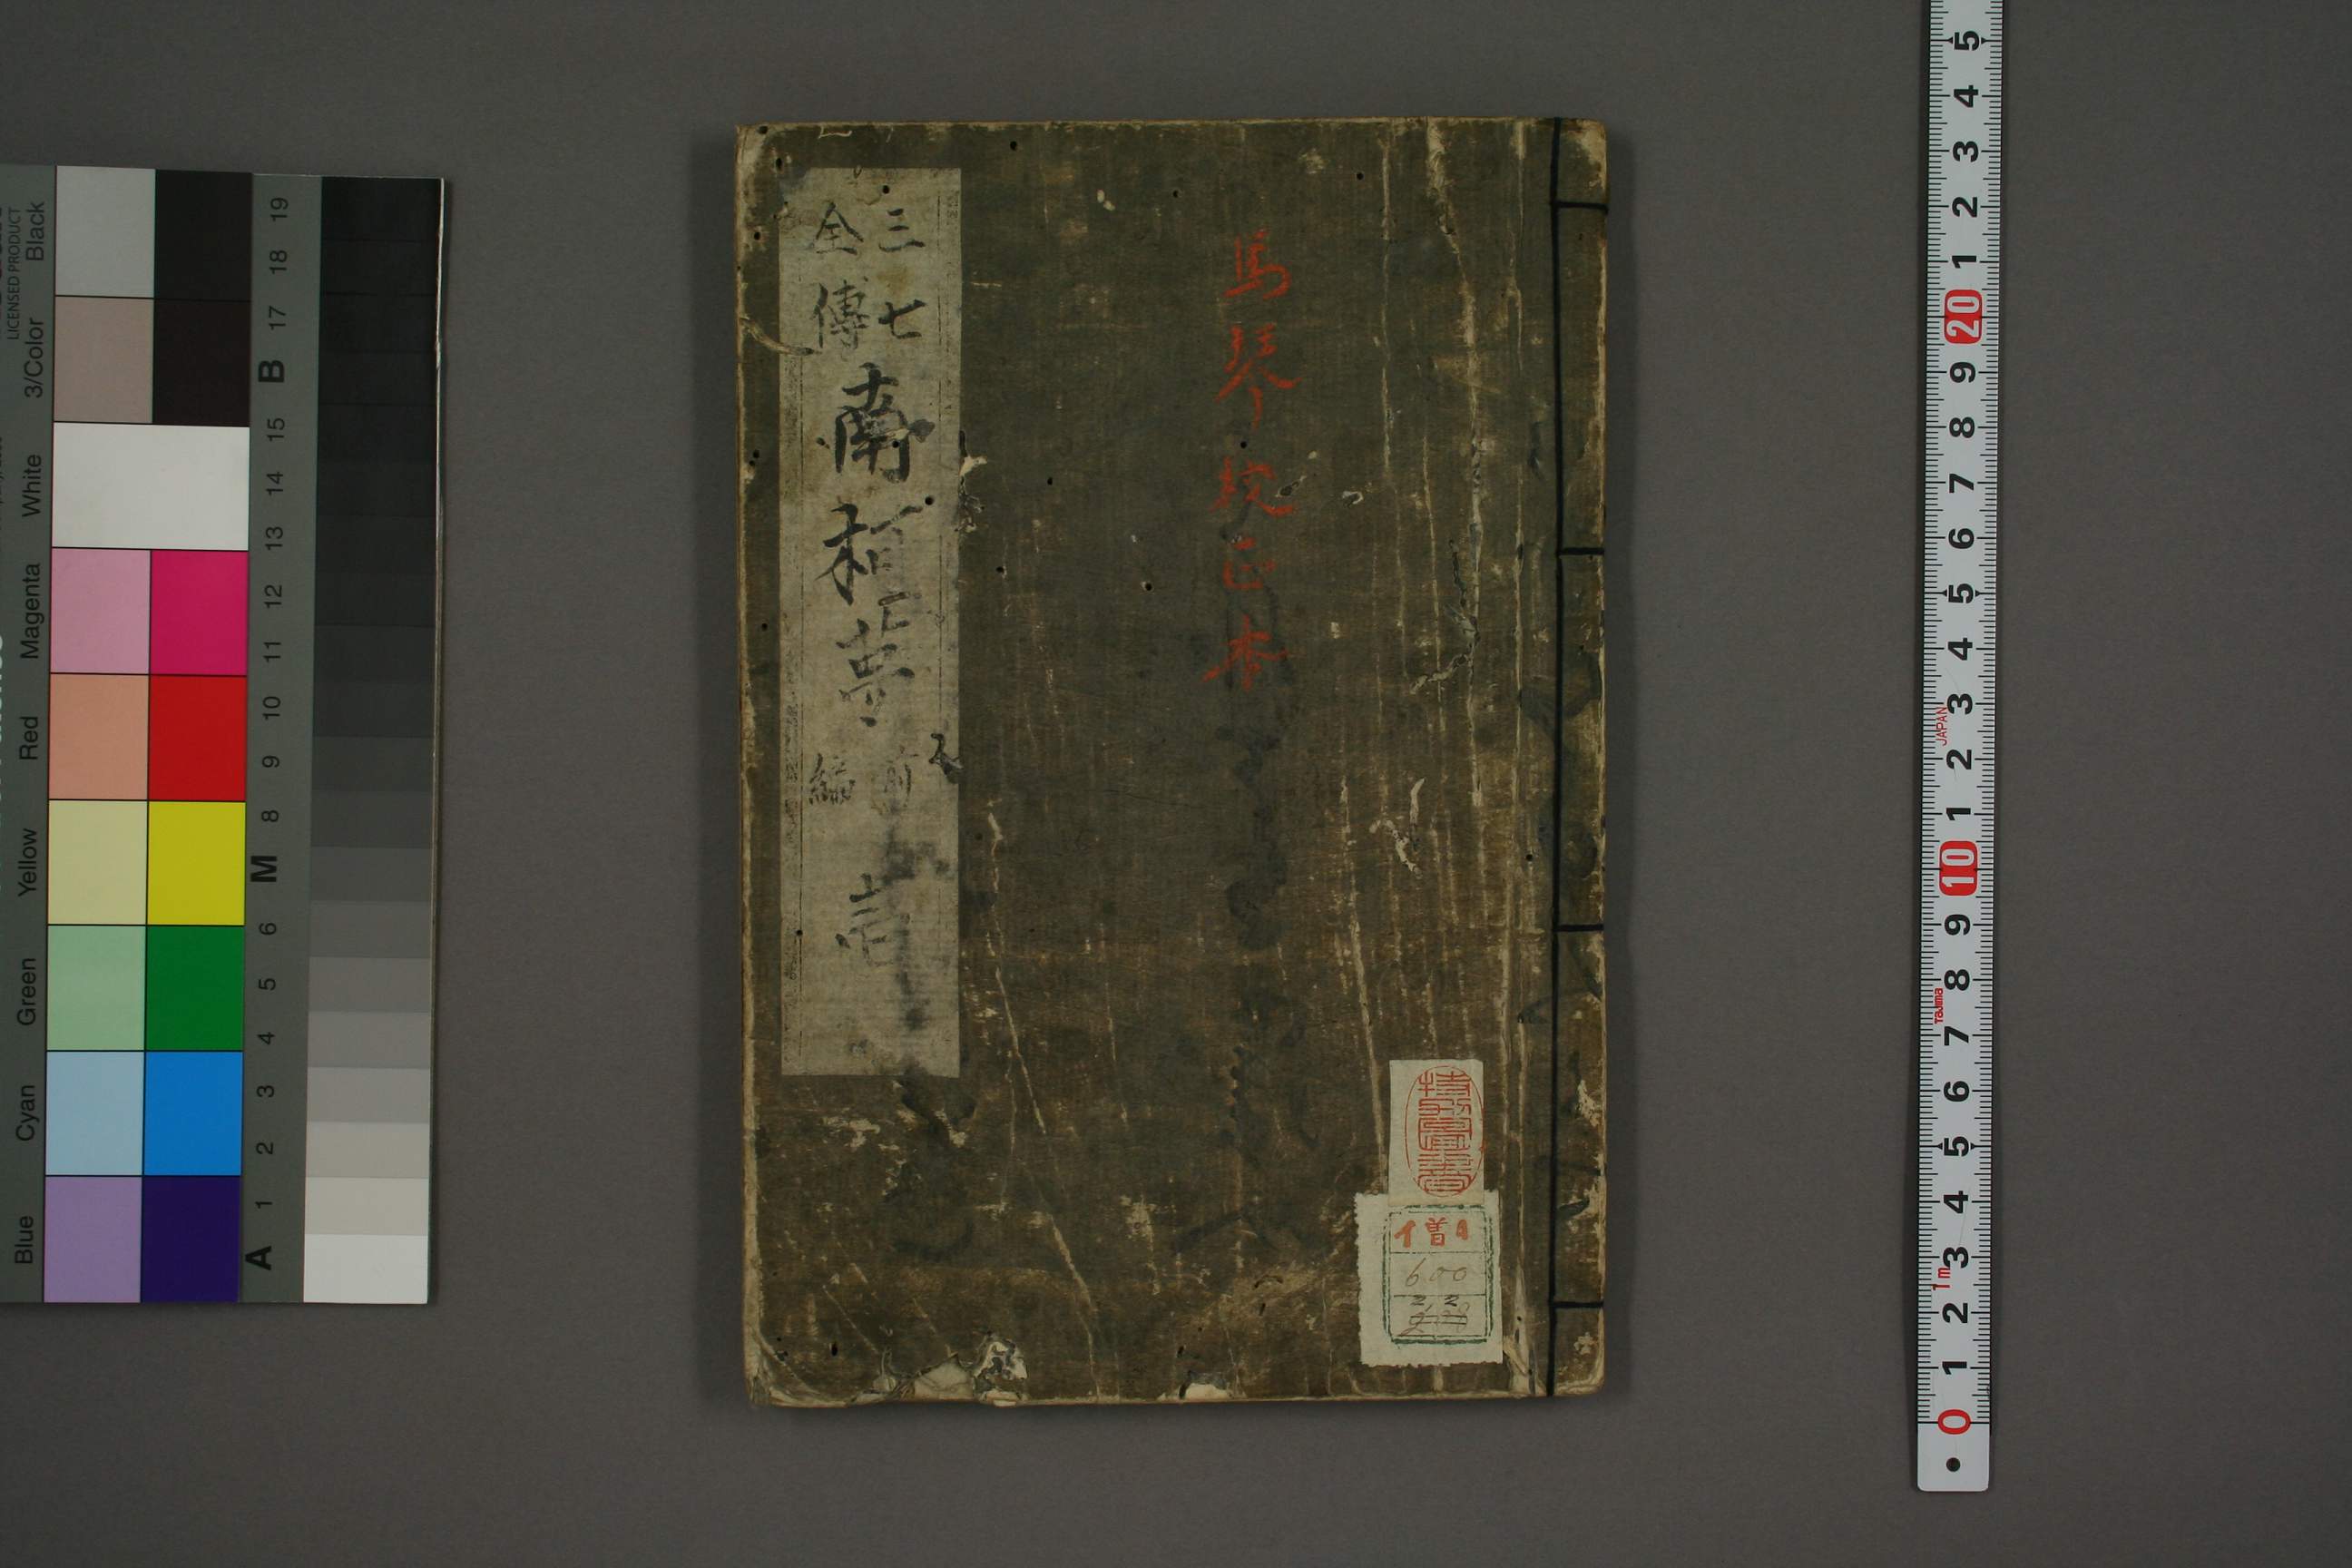 三七
全傳
南柯夢
前
編
壹
馬琴校正本
特別買上
600
22
Blue Cyan Green Yellow Red Magenta White 3/Color Black
LICENSED PRODUCT
A 1 2 3 4 5 6 M 8 9 10 11 12 13 14 15 B 17 18 19
5 4 3 2 1 20 9 8 7 6 5 4 3 2 1 10 9 8 7 6 5 4 3 2 1 0
JAPAN
Tajima
1m